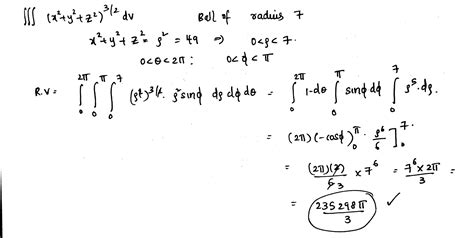 ∭ (x²+y²+z²)^{3/2} dv     Ball of radius 7
x²+y²+z² = ρ² = 49 ⇒ 0<ρ<7.
0<θ<2π ; 0<ϕ<π
R.V = ∫₀^{2π} ∫₀^{π} ∫₀^{7} (ρ²)^{3/2} · ρ² sinϕ dρ dϕ dθ = ∫₀^{2π} 1·dθ ∫₀^{π} sinϕ dϕ ∫₀^{7} ρ⁵·dρ.
= (2π) (-cosϕ)₀^{π} · ρ⁶/6 ]₀^{7}.
= (2π)(2)/6 3 × 7⁶ = 7⁶ × 2π/3 =
= 235298π/3 ✓